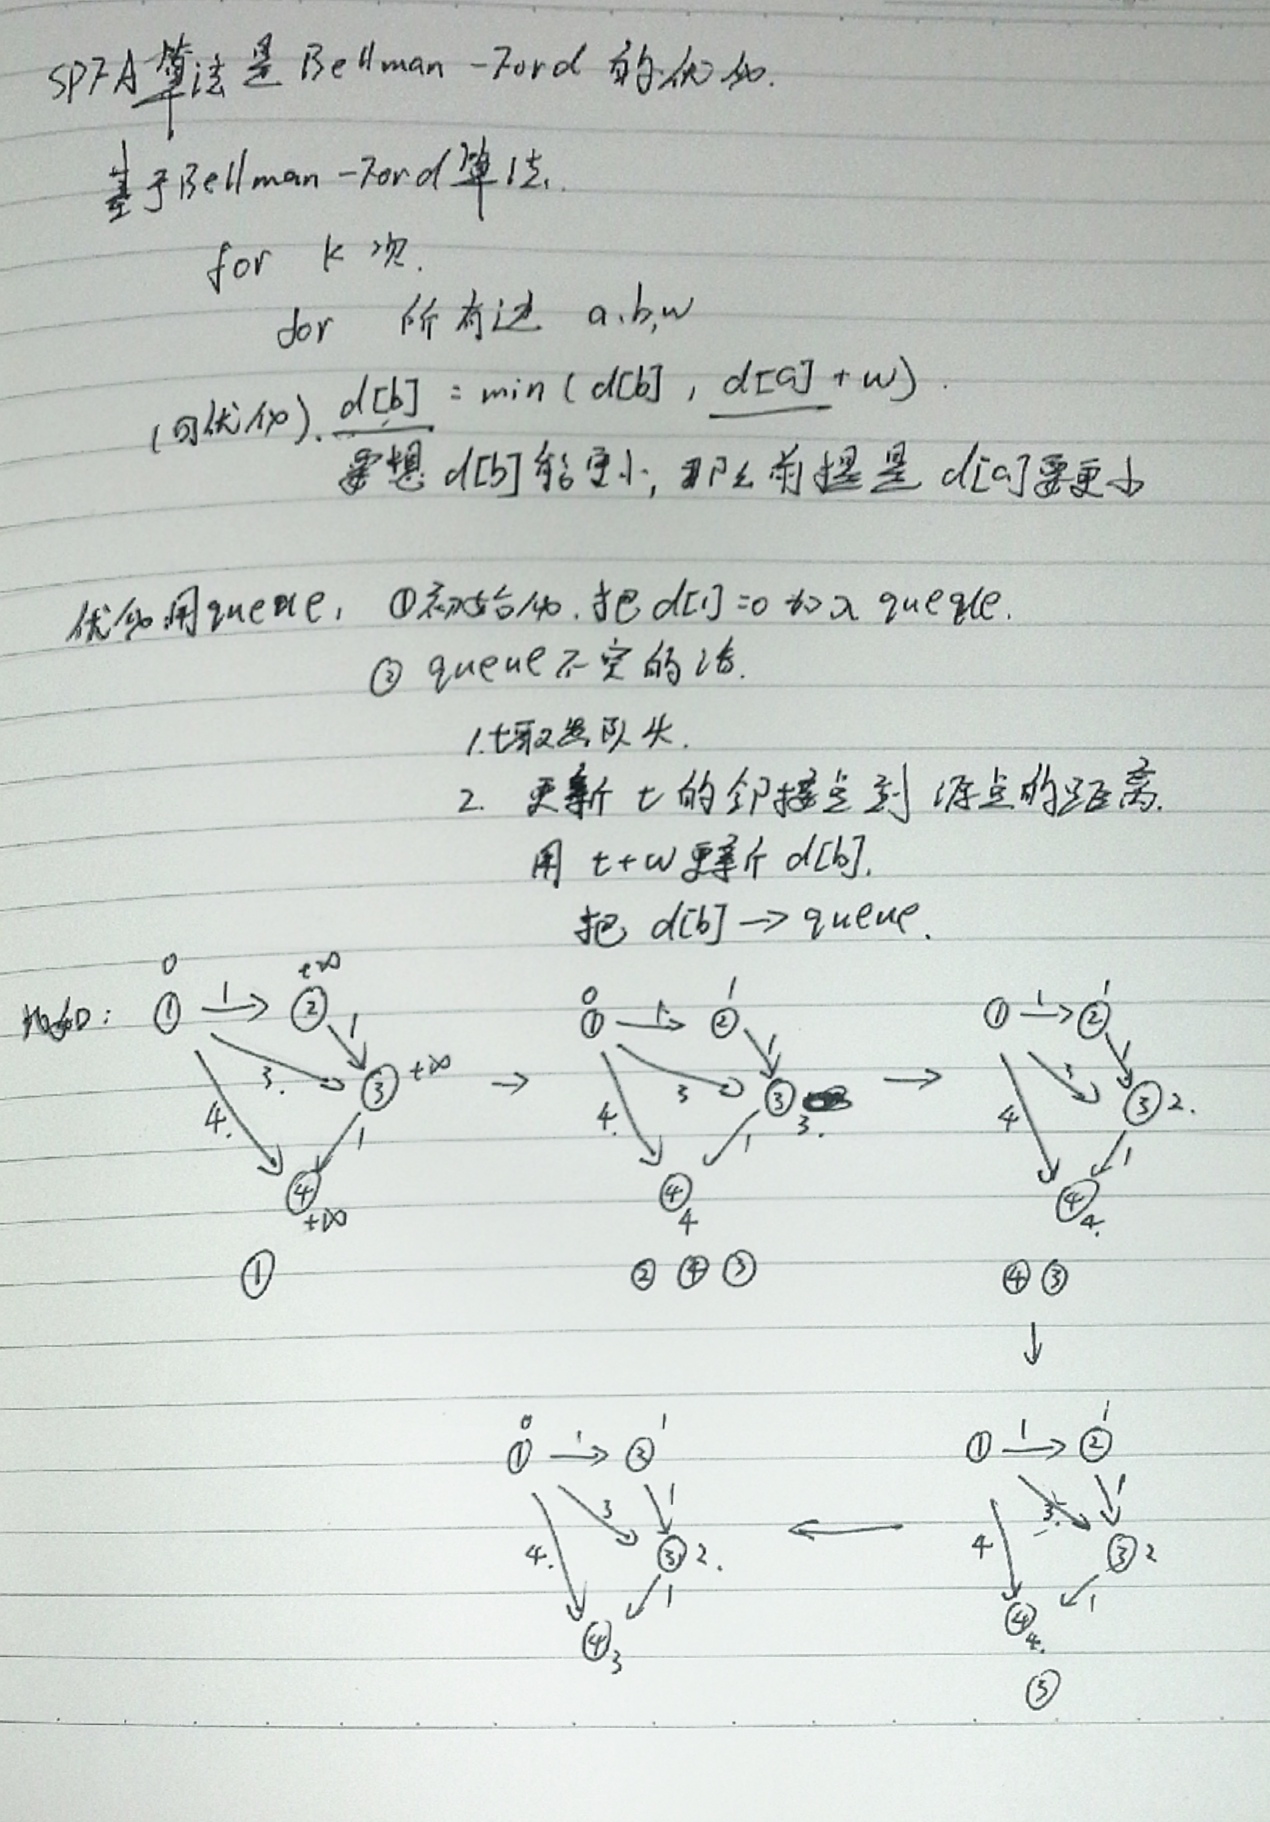 SPFA算法是Bellman-Ford的优化.
基于Bellman-Ford算法.
for k次.
for 所有边 a.b,w
(可优化). d[b] = min(d[b], d[a]+w).
要想d[b]能更小, 那么前提是d[a]要更小
优化用queue, ①初始化.把d[1]=0加入queue.
② queue不空的话.
1.t取出队头.
2. 更新t的邻接点到源点的距离.
用t+w更新d[b].
把d[b]→queue.
比如:
0 +∞
① 1 ② 1
3. ③ +∞
4. 1
④
+∞
①
→
0 1
① 1 ② 1
3 ③ 3.
4. 1
④
4
② ④ ③
→
1
① 1 ② 1
3 ③ 2.
4 1
④ 4.
④ ③
↓
1
① 1 ② 1
3 ③ 2
4 1
④ 4.
←
0 1
① 1 ② 1
3 ③ 2.
4. 1
④ 3